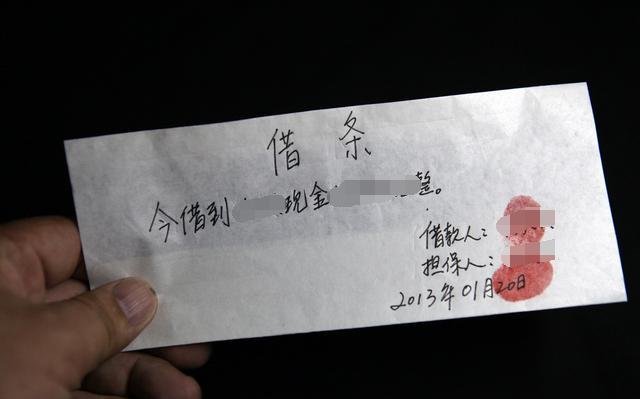 借条
今借到 现金 整。
借款人：
担保人：
2013年01月20日